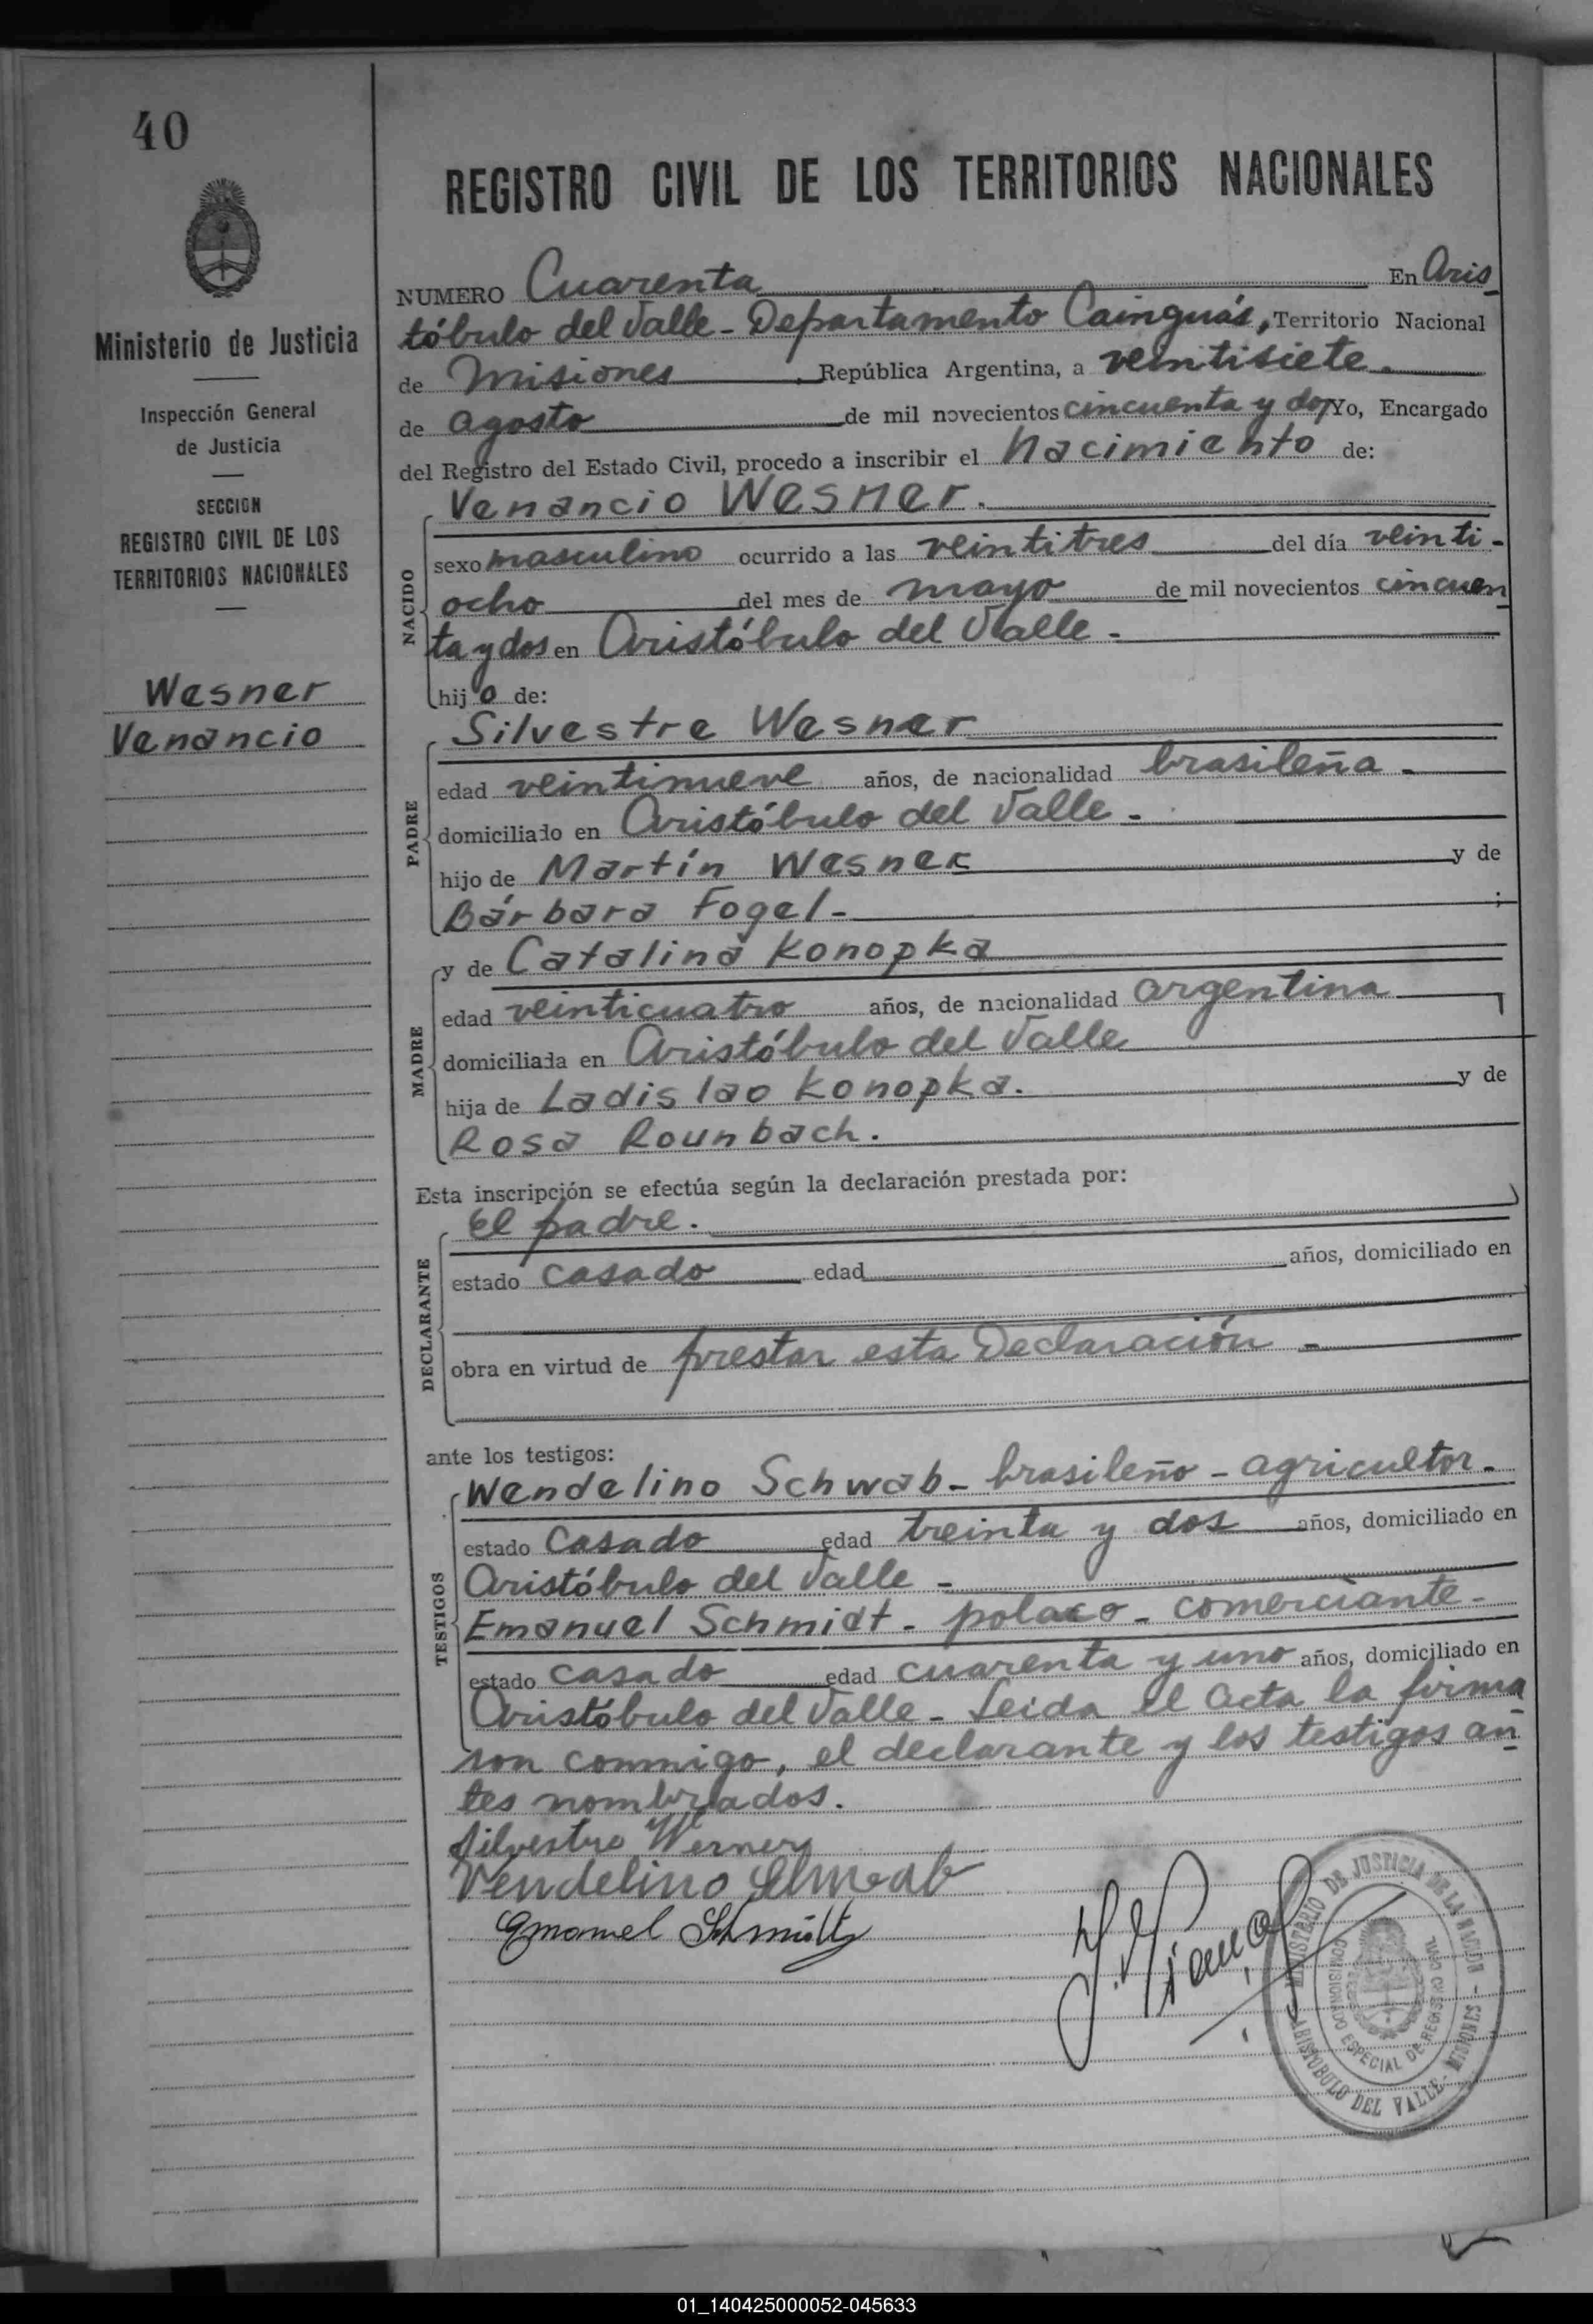 40
REGISTRO CIVIL DE LOS TERRITORIOS NACIONALES
Ministerio de Justicia
Inspección General
de Justicia
SECCION
REGISTRO CIVIL DE LOS
TERRITORIOS NACIONALES
Wesner
Venancio
NUMERO Cuarenta En Aris
tóbulo del Valle - Departamento Cainguás, Territorio Nacional
de Misiones República Argentina, a veintisiete.
de agosto de mil novecientos cincuenta y dos Yo, Encargado
del Registro del Estado Civil, procedo a inscribir el Nacimiento de:
NACIDO
Venancio Wesner.
sexo masculino ocurrido a las veintitres del día veinti-
ocho del mes de mayo de mil novecientos cincuen
ta y dos en Aristóbulo del Valle -
hijo de:
PADRE
Silvestre Wesner
edad veintinueve años, de nacionalidad brasileña -
domiciliado en Aristóbulo del Valle -
hijo de Martín Wesner y de
Bárbara Fogel - ;
MADRE
y de Catalina Konopka
edad veinticuatro años, de nacionalidad argentina
domiciliada en Aristóbulo del Valle
hija de Ladislao Konopka. y de
Rosa Rounbach.
Esta inscripción se efectúa según la declaración prestada por:
DECLARANTE
El padre.
estado casado edad años, domiciliado en
obra en virtud de prestar esta Declaración -
ante los testigos:
TESTIGOS
Wendelino Schwab - brasileño - agricultor -
estado casado edad treinta y dos años, domiciliado en
Aristóbulo del Valle -
Emanuel Schmidt - polaco - comerciante -
estado casado edad cuarenta y uno años, domiciliado en
Aristóbulo del Valle - Leida el acta la firma
ron conmigo, el declarante y los testigos an
tes nombrados.
Silvestre Werner
Vendelino Schwab
Emanuel Schmidt
MINISTERIO DE JUSTICIA DE LA NACION
COMISIONADO ESPECIAL DE REGISTRO CIVIL
ARISTOBULO DEL VALLE - MISIONES -
01_140425000052-045633